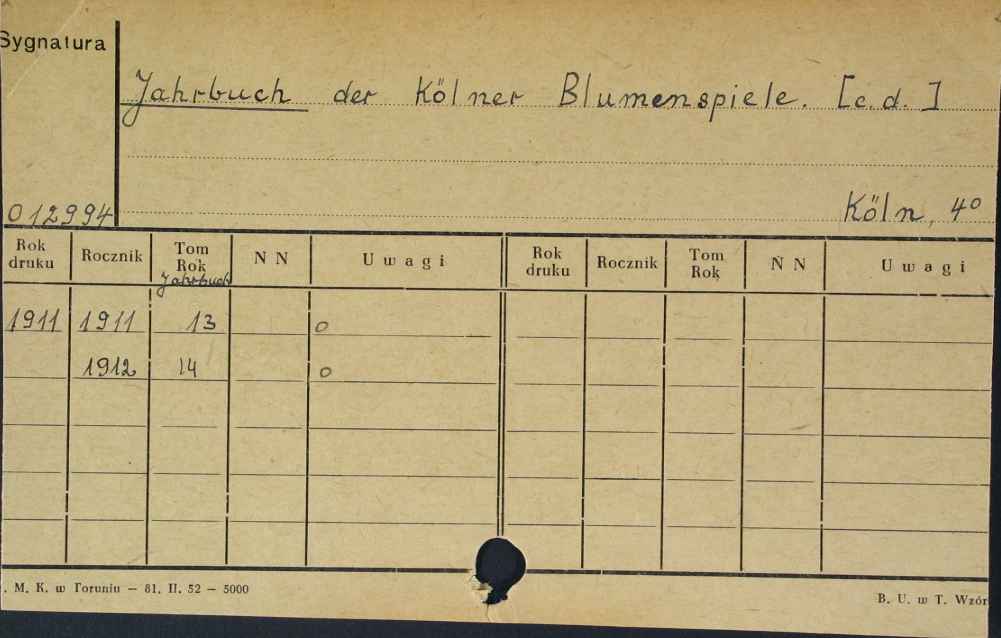 Sygnatura
Jahrbuch der Kölner Blumenspiele. [c.d.]
012994
Köln, 4°
Rok druku Rocznik Tom Rok Jahrbuch N N Uwagi Rok druku Rocznik Tom Rok N N Uwagi
1911 1911 13 o
1912 14 o
. M. K. w Toruniu — 81. II. 52 — 5000
B. U. w T. Wzór